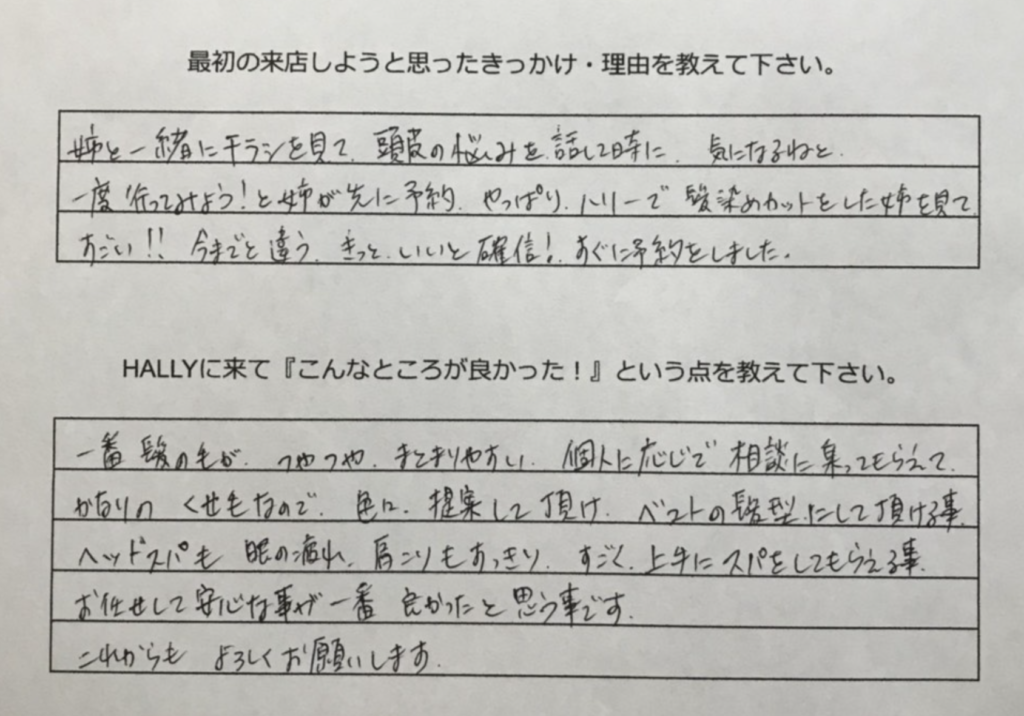 最初の来店しようと思ったきっかけ・理由を教えて下さい。
姉と一緒にチラシを見て、頭皮の悩みを話して時に、気になるねと、
一度行ってみよう!と姉が先に予約、やっぱり、ハリーで髪染めカットをした姉を見て
すごい!!今までと違う、きっと、いいと確信!、すぐに予約をしました。
HALLYに来て『こんなところが良かった!』という点を教えて下さい。
一番髪の毛が、つやつや、まとまりやすい、個人に応じて相談に乗ってもらえて、
かなりのくせ毛なので、色々、提案して頂け、ベストの髪型にして頂ける事、
ヘッドスパも眼の疲れ、肩こりもすっきり、すごく、上手にスパをしてもらえる事、
お任せして安心な事が一番良かったと思う事です。
これからもよろしくお願いします。